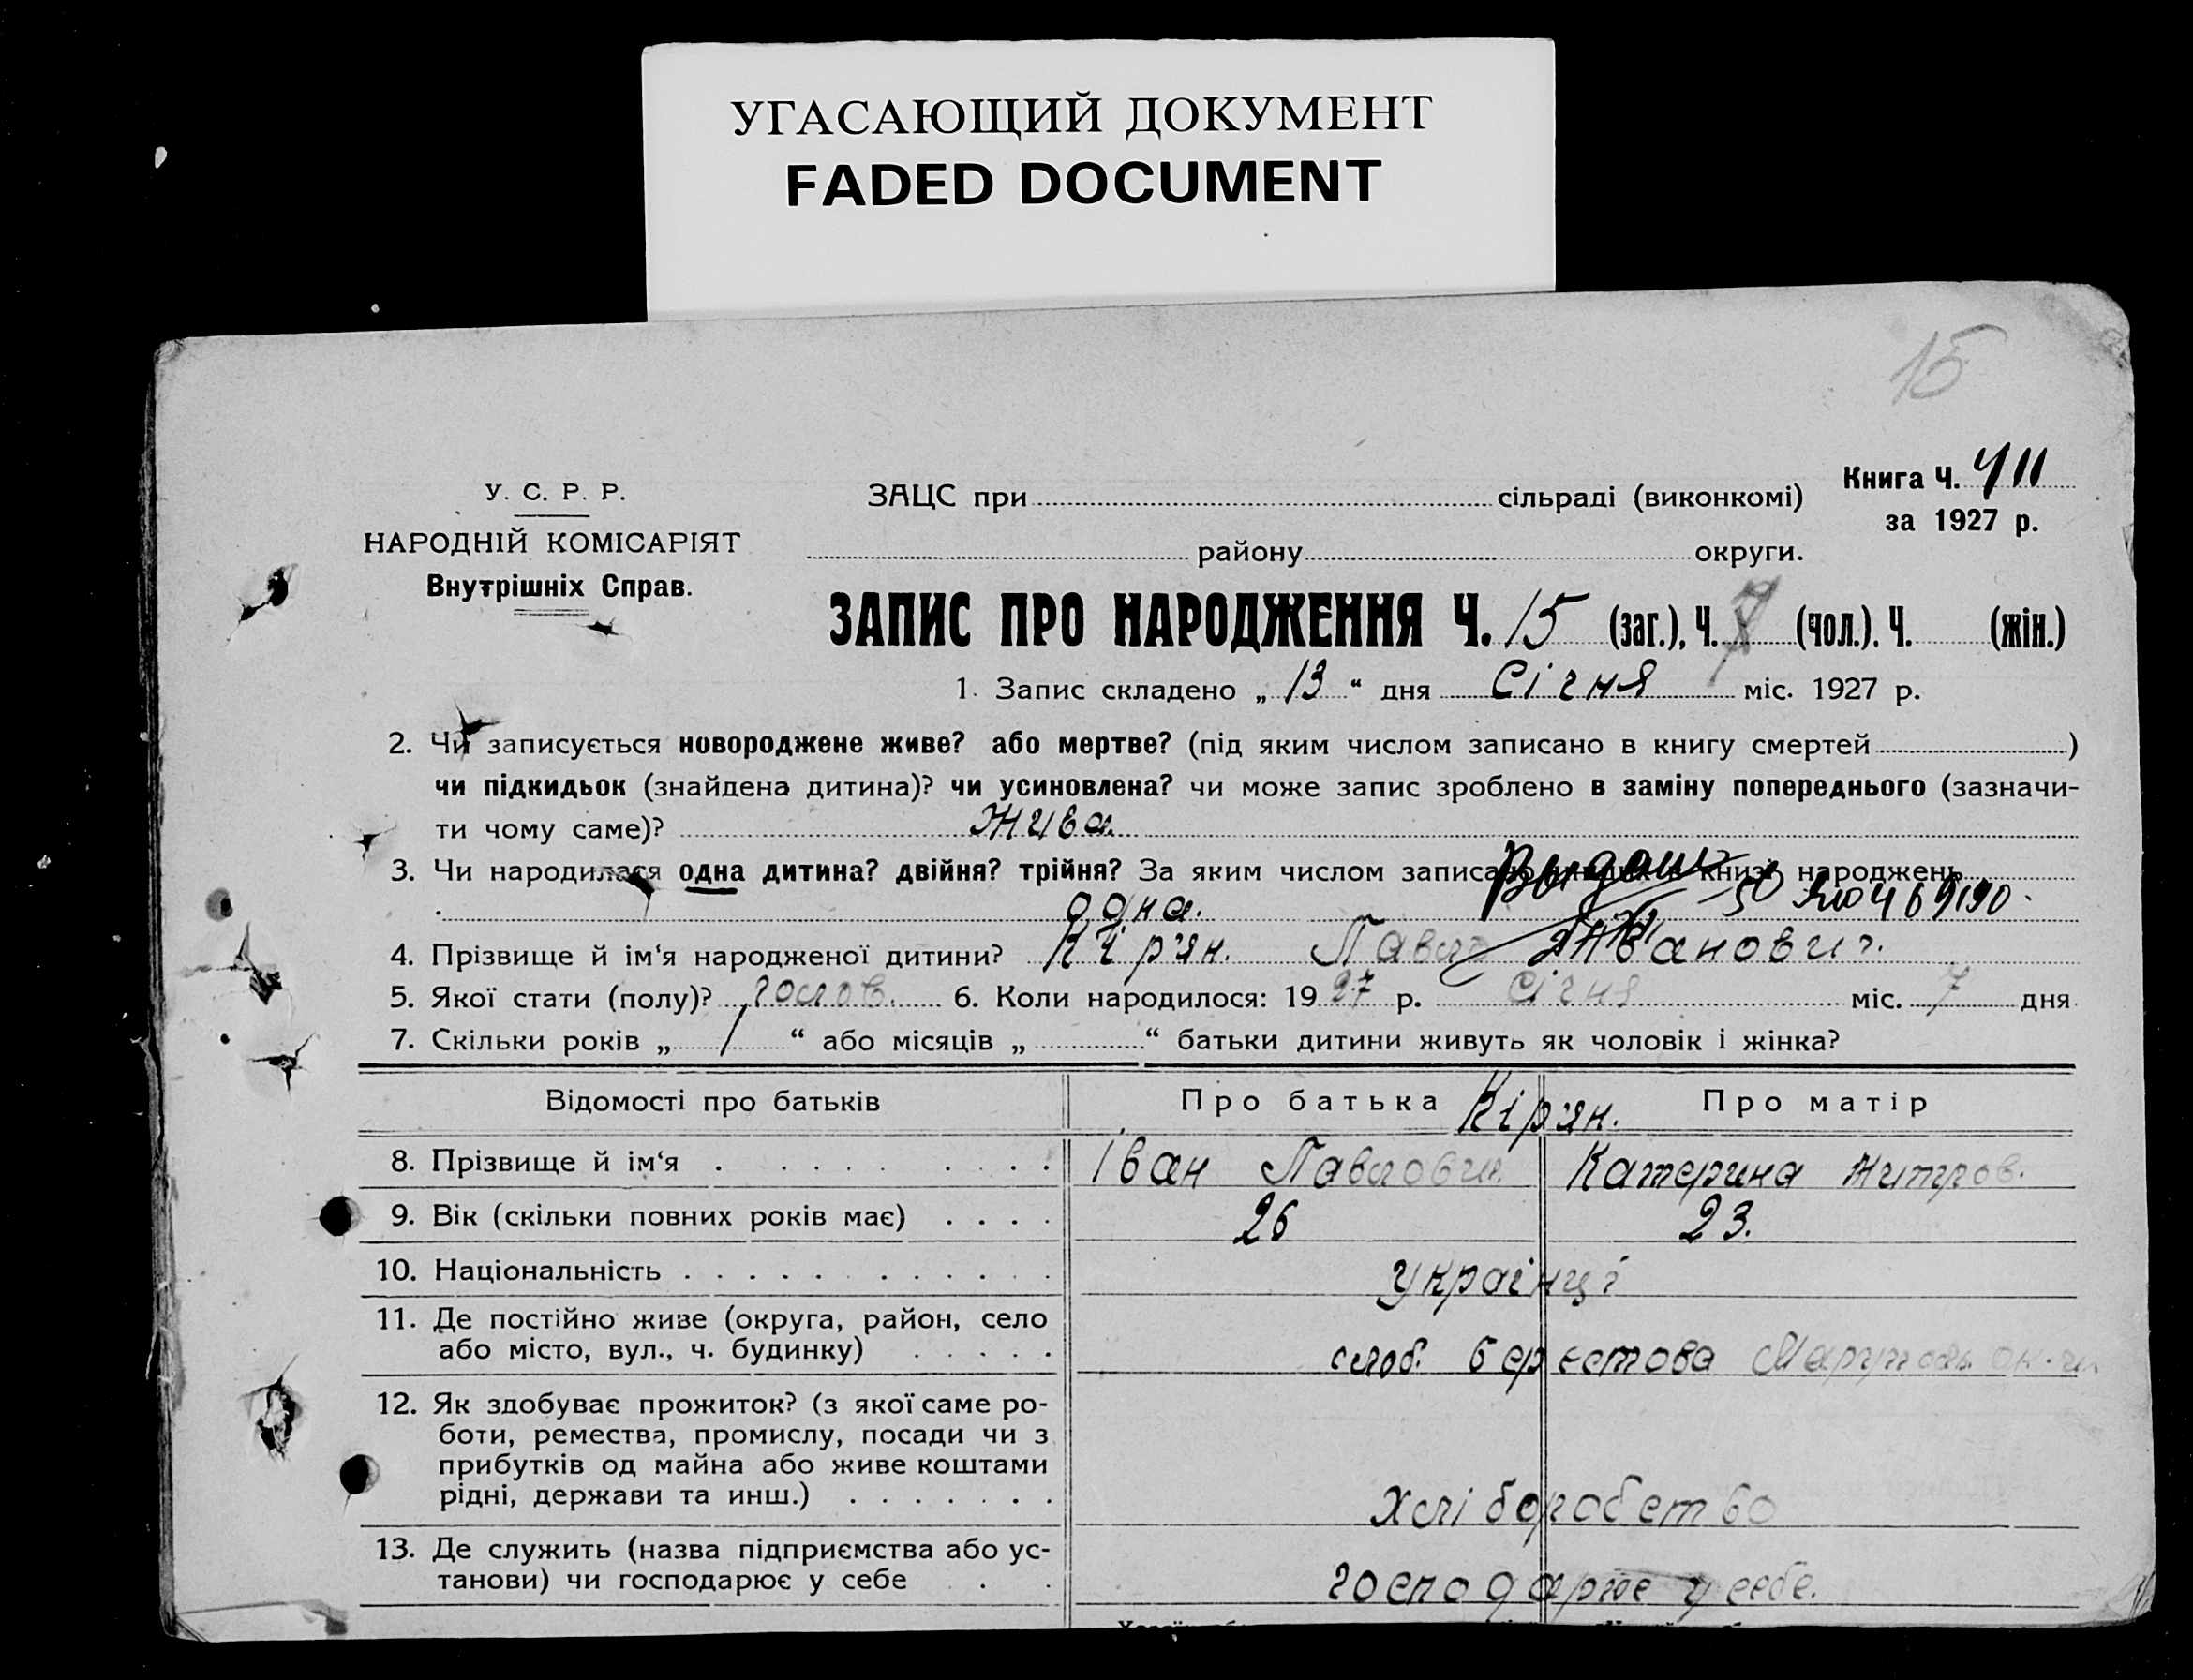 УГАСАЮЩИЙ ДОКУМЕНТ
FADED DOCUMENT
15
У. С. Р. Р.
НАРОДНІЙ КОМІСАРІЯТ
Внутрішніх Справ.
ЗАЦС при сільраді (виконкомі)
району округи.
Книга Ч. 411
за 1927 р.
ЗАПИС ПРО НАРОДЖЕННЯ Ч. 15 (заг.), Ч. (чол.). Ч. (жін.)
1. Запис складено „ 13 “ дня Січня міс. 1927 р.
2. Чи записується новороджене живе? або мертве? (під яким числом записано в книгу смертей )
чи підкидьок (знайдена дитина)? чи усиновлена? чи може запис зроблено в заміну попереднього (зазначи-
ти чому саме)? Жива.
3. Чи народилася одна дитина? двійня? трійня? За яким числом книзі народжень
одна.
4. Прізвище й ім‘я народженої дитини? Кір'ян. Павло Іванович.
5. Якої стати (полу)? 6. Коли народилося: 1927 р. Січня міс. 7 дня
7. Скільки років „ 1 “ або місяців „ “ батьки дитини живуть як чоловік і жінка?
Відомості про батьків Про батька Кір'ян. Про матір
8. Прізвище й ім‘я Іван Павлович. Катерина
9. Вік (скільки повних років має) 26 23.
10. Національність українці
11. Де постійно живе (округа, район, село
або місто, вул., ч. будинку) слоб. Берестова
12. Як здобуває прожиток? (з якої саме ро-
боти, ремества, промислу, посади чи з
прибутків од майна або живе коштами
рідні, держави та инш.) хліборобство
13. Де служить (назва підприємства або ус-
танови) чи господарює у себе господарює у себе.